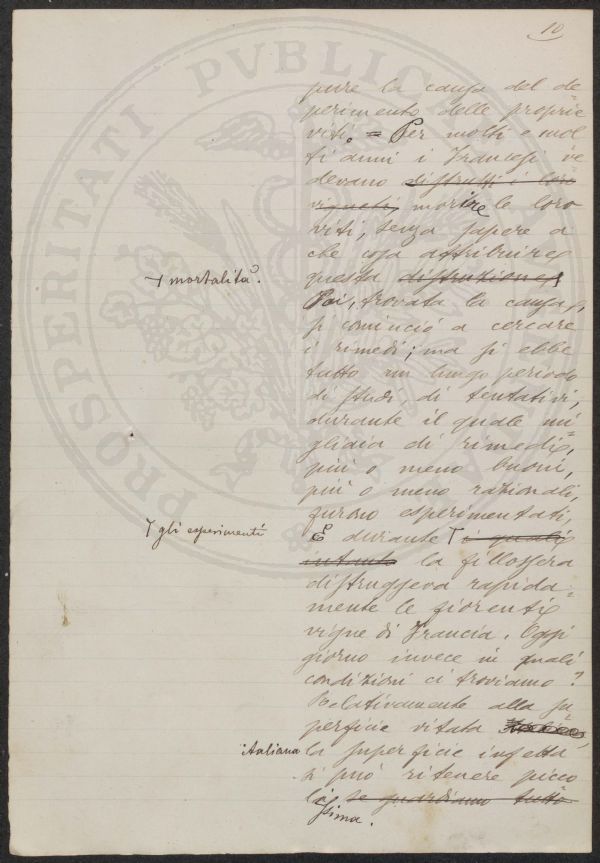 10
pure la causa del de=
perimento delle proprie
viti. = Per molti e mol
ti anni i Francesi ve
devano distrutti i loro
vigneti, morire le loro
viti, senza sapere a
che cosa attribuire
questa distruzione,
+ mortalità.
Poi, trovata la causa,
si cominciò a cercare
i rimedi; ma si ebbe
tutto un lungo periodo
di studi di tentativi,
durante il quale mi=
gliaia di rimedi,
più o meno buoni,
più o meno razionali,
furono esperimentati,
E durante T i quali
T gli esperimenti
intanto la fillossera
distruggeva rapida=
mente le fiorenti
vigne di Francia. Oggi
giorno invece in quali
condizioni ci troviamo?
Relativamente alla su=
perficie vitata
italiana
la superficie infetta
si può ritenere picco
la se guardiamo tutto
ssima.
PROSPERITATI PVBLICAE